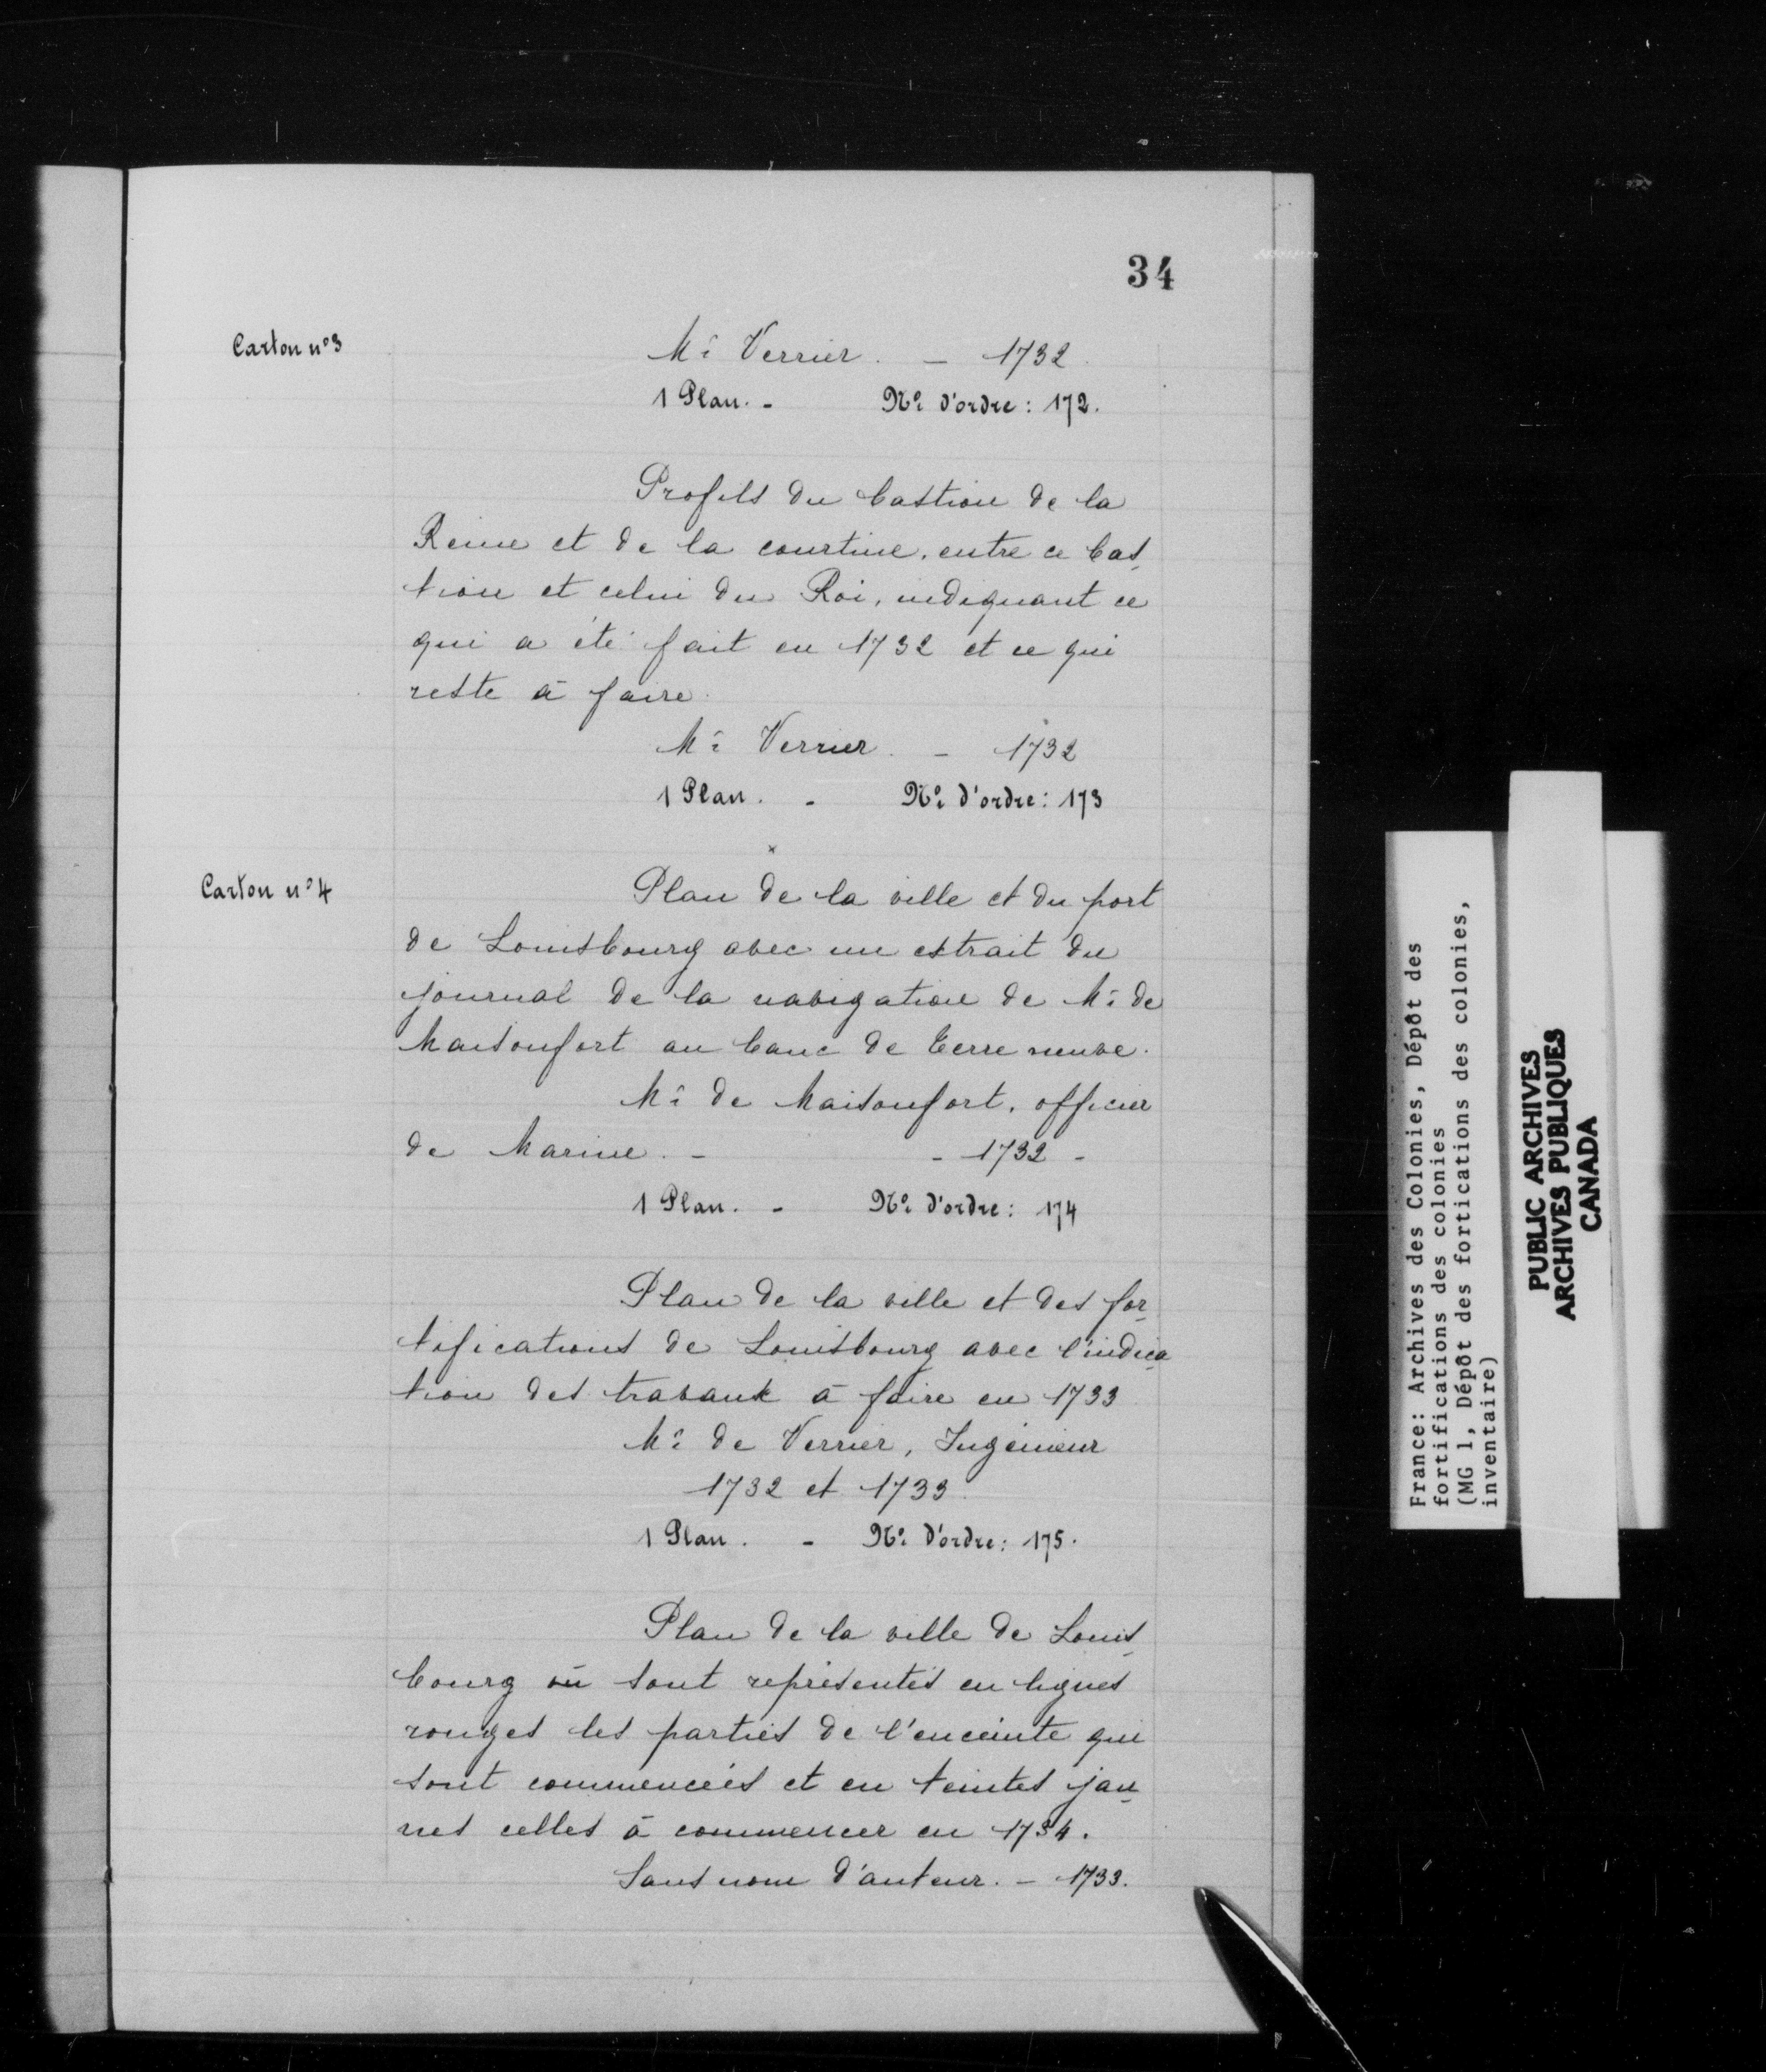 34
Carton n° 3
Mr Verrier. - 1732.
1 Plan. - No d'ordre : 172.
Profils du bastion de la
Reine et de la courtine, entre ce bas-
tion et celui du Roi, indiquant ce
qui a été fait en 1732 et ce qui
reste à faire.
Mr Verrier. - 1732
1 Plan. - No d'ordre : 173
x
Carton n° 4
Plan de la ville et du port
de Louisbourg avec un extrait du
journal de la navigation de Mr de
Maisonfort au banc de Terre neuve.
Mr de Maisonfort, officier
de Marine. - - 1732 -
1 Plan. - No d'ordre : 174
Plan de la ville et des for-
tifications de Louisbourg avec l'indica
tion des travaux à faire en 1733
Mr de Verrier, Ingénieur
1732 et 1733.
1 Plan. - No d'ordre : 175.
Plan de la ville de Louis-
bourg où sont représentés en lignes
rouges les parties de l'enceinte qui
sont commencées et en teintes jau-
nes celles à commencer en 1734.
Sans nom d'auteur. - 1733.
France: Archives des Colonies, Dépôt des
fortifications des colonies
(MG 1, Dépôt des fortications des colonies,
inventaire)
PUBLIC ARCHIVES
ARCHIVES PUBLIQUES
CANADA